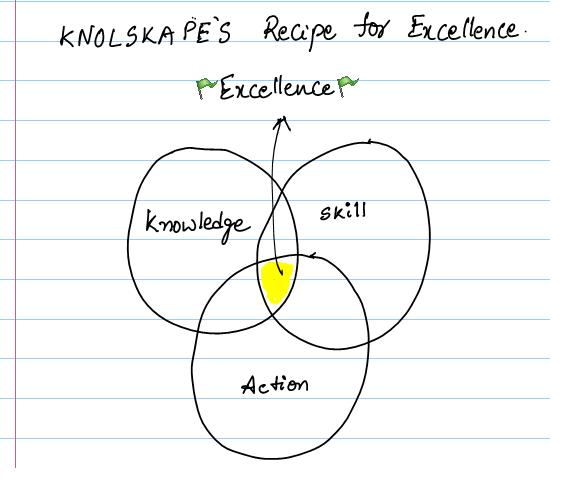 KNOLSKAPE'S Recipe for Excellence.
Excellence
Knowledge
Skill
Action